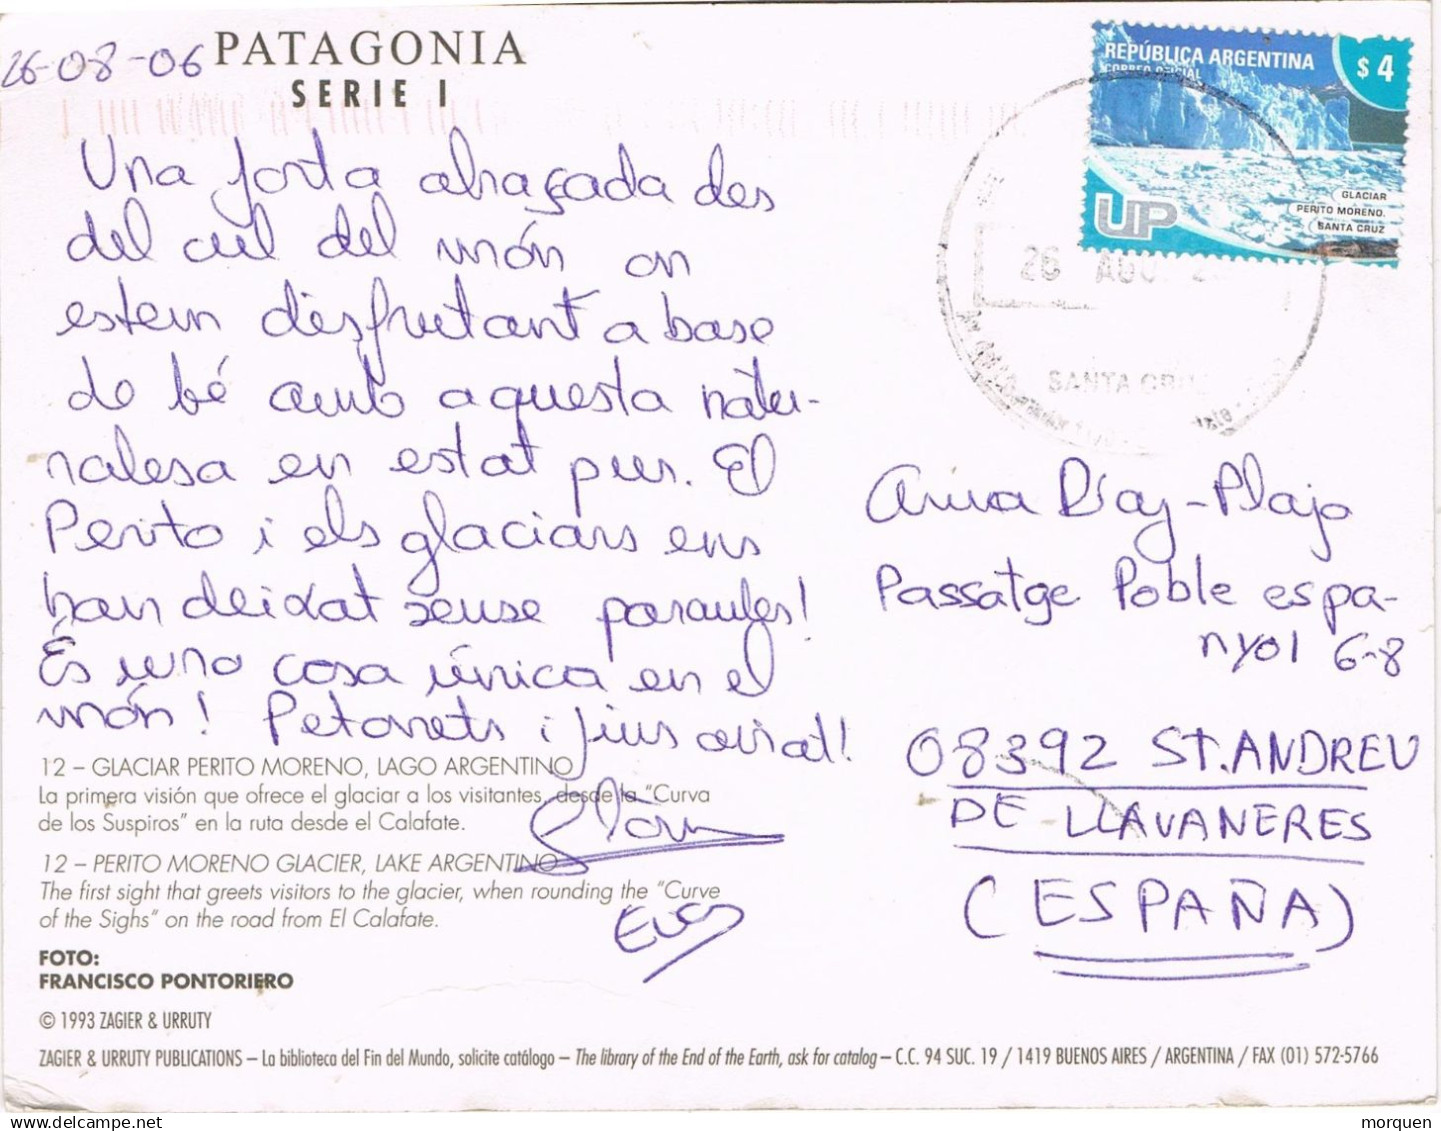 26-08-06 PATAGONIA
SERIE I
REPÚBLICA ARGENTINA
CORREO OFICIAL
$ 4
GLACIAR
PERITO MORENO.
SANTA CRUZ
UP
26 AGO. 2
SANTA CRUZ
Una forta abraçada des
del cul del món on
estem disfrutant a base
de bé amb aquesta natu-
ralesa en estat pur. El
Perito i els glacians ens
han deixat sense paraules!
És una cosa única en el
món! Petonets i fins aviat!
Anna Díaz-Plaja
Passatge Poble espa-
nyol 6-8
08392 ST. ANDREU
DE LLAVANERES
(ESPAÑA)
12 – GLACIAR PERITO MORENO, LAGO ARGENTINO
La primera visión que ofrece el glaciar a los visitantes, desde la "Curva
de los Suspiros" en la ruta desde el Calafate.
12 – PERITO MORENO GLACIER, LAKE ARGENTINO
The first sight that greets visitors to the glacier, when rounding the "Curve
of the Sighs" on the road from El Calafate.
FOTO:
FRANCISCO PONTORIERO
© 1993 ZAGIER & URRUTY
ZAGIER & URRUTY PUBLICATIONS – La biblioteca del Fin del Mundo, solicite catálogo – The library of the End of the Earth, ask for catalog – C.C. 94 SUC. 19 / 1419 BUENOS AIRES / ARGENTINA / FAX (01) 572-5766
morquen